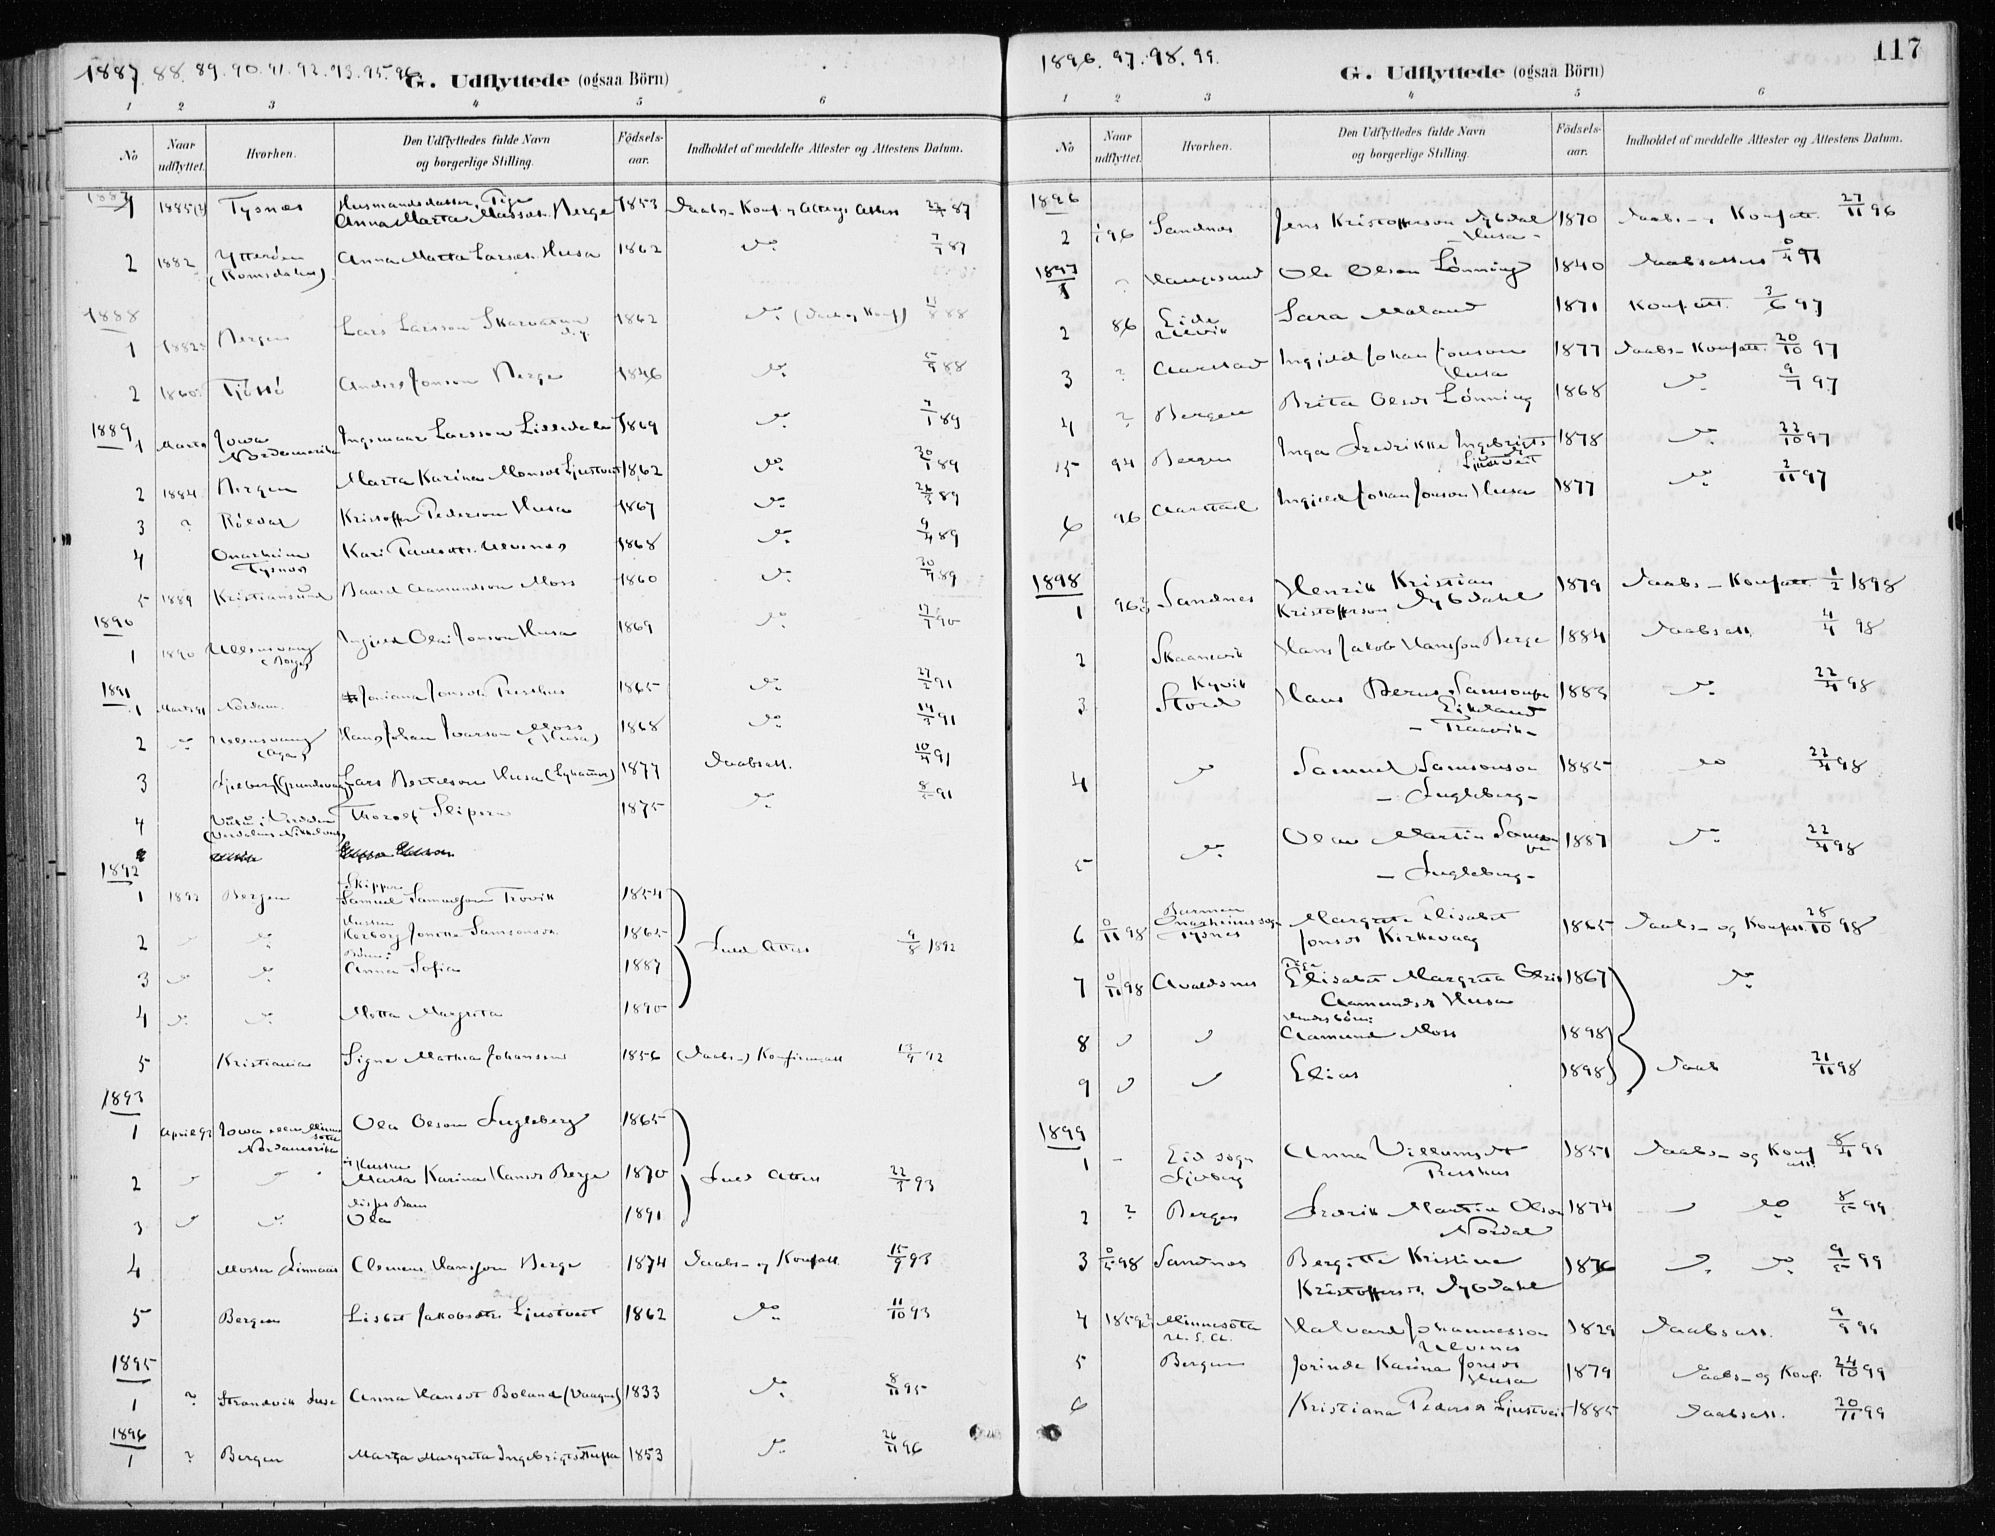 1887. 88. 89. 90. 91. 92. 93. 95. 96
G. Udflyttede (ogsaa Börn)
1 2 3 4 5 6
No Naar udflyttet. Hvorhen. Den Udflyttedes fulde Navn og borgerlige Stilling. Födsels-aar. Indholdet af meddelte Attester og Attestens Datum.
1887
1 Tysnes Husmandsdatter, Pige Anna Marta Berge 1853 87
2 1882 Ytterøen (Romsdalen) Anna Marta Larsdt. Husa 1862 do 7/7 87
1888
1 Bergen Lars Larsson 1862 do 88
2 1860 Tjøttø Anders Jonson Berge 1846 do 5/9 88
1889
1 Marts Iowa Nordamerika Ingemar Larsson Lilledale 1869 do 7/1 89
2 1884 Bergen Marta Karina Monsdt Ljustveit 1862 do 30/1 89
3 ? Røldal Kristoffer Pederson Husa 1867 do 26/3 89
4 Onarheim Tysnes Kari Ulvenes 1868 do 9/4 89
5 1889 Kristiansund Baard Aamundson Moss 1860 do 89
1890
1 1890 Ullensvang Ingjeld Olai Jonson Husa 1869 do 17/7 90
1891
1 Joniana Jonsdt. 1865 do 27/2 91
2 do Ullensvang (Aga) Hans Johan Ivarson Moss (Husa) 1868 do 14/3 91
3 Fjelberg Lars Bertelson Husa 1877 Daabsatt. 10/4 91
4 Thorolf 1875 do 8/5 91
1892
1 1892 Bergen Skipper Samuel Trovik 1854
2 do Hustru Jonette Samsonsdt. 1865 Fuld Attest 9/8 1892
3 do do Børn: Anna Sofia 1887
4 do do Motta Margrita 1890
5 Kristiania Signe Mathea Johanssen 1856 (Daabs-) Konfirmatt 13/9 92
1893
1 April 93 Iowa eller Minnesota Nordamerika Ola Olsson Fugleberg 1865
2 Hustru Marta Karina Hansdt Berge 1870 Fuld Attest 22/3 93
3 do Disses Barn Ola 1891
4 Moster Clemens Hansson Berge 1874 Daabs- og Konfatt. 15/9 93
5 Bergen Lisbet Jakobsdtr Ljustveit 1862 do 11/10 93
1895
1 ? Strandvik Fuse Anna Hansdt Boland 1833 do 8/11 95
1896
1 ? Bergen Marta Margreta Ingebrigtsdt 1853 do 26/11 96
1896. 97. 98. 99.
117
G. Udflyttede (ogsaa Börn)
1 2 3 4 5 6
No Naar udflyttet. Hvorhen. Den Udflyttedes fulde Navn og borgerlige Stilling. Födsels-aar. Indholdet af meddelte Attester og Attestens Datum.
1896
2 96 Sandnes Jens Kristofferson Dybdal - Husa - 1870 Daabs- og Konfatt. 27/11 96
1897
1 ? Haugesund Ole Olson Lønning 1840 Daabsattest 97
2 86 Eide Ulvik Sara Moland 1871 Konfatt. 3/6 97
3 ? Aarstad Ingjeld Johan Jonsson Husa 1877 Daabs- Konfatt. 20/10 97
4 ? Bergen Brita Olsdt Lønning 1868 do 9/7 97
5 94 Bergen Inga Fredrikke Ingebrigts Ljustveit 1878 do 22/10 97
6 96 Aarstad Ingjeld Johan Jonson Husa 1877 do 2/11 97
1898
1 96 Sandnes Henrik Kristian Kristofferson Dybdahl 1879 Daabs- Konfatt 1/2 1898
2 Skaanevik Hans Jakob Hansson Berge 1884 Daabsatt. 4/4 98
3 Kyvik Stord Hans Berus Samsonson Eikeland - Traavik - 1883 do 22/4 98
4 do Samuel Samsonson - Fugleberg - 1885 do 22/4 98
5 do Olaus Martin Samsonson - Fugleberg - 1887 do 22/4 98
6 0/11 98 Onarheims sogn Tysnes Margrete Elisabet Jonsdt Kirkevaag 1865 Daabs- og Konfatt. 28/10 98
7 0/11 98 Avaldsnes Pige Elisabet Margreta Aamundsdt Husa 1867 do
8 Aamund Moss 1898
9 Elias 1898 Daab 21/11 98
1899
1 - Eid sogn Fjelberg Anna Villumsdt 1851 Daabs- og Konf att. 8/4 99
2 ? Bergen Fredrik Martin Olson Nordal 1874 do 8/5 99
3 98 Sandnes Bergitte Kristine Kristoffersdt. Dybdahl 1876 do 9/5 99
4 Minnesota U.S.A. Halvard Johannesson Ulvenes 1829 Daabsatt. 9/9 99
5 Bergen Jorinde Karina Jonsdt Husa 1879 Daabs- og Konf. 24/10 99
6 Kristiana Pedersdt Ljustveit 1885 Daabsatt. 20/11 99